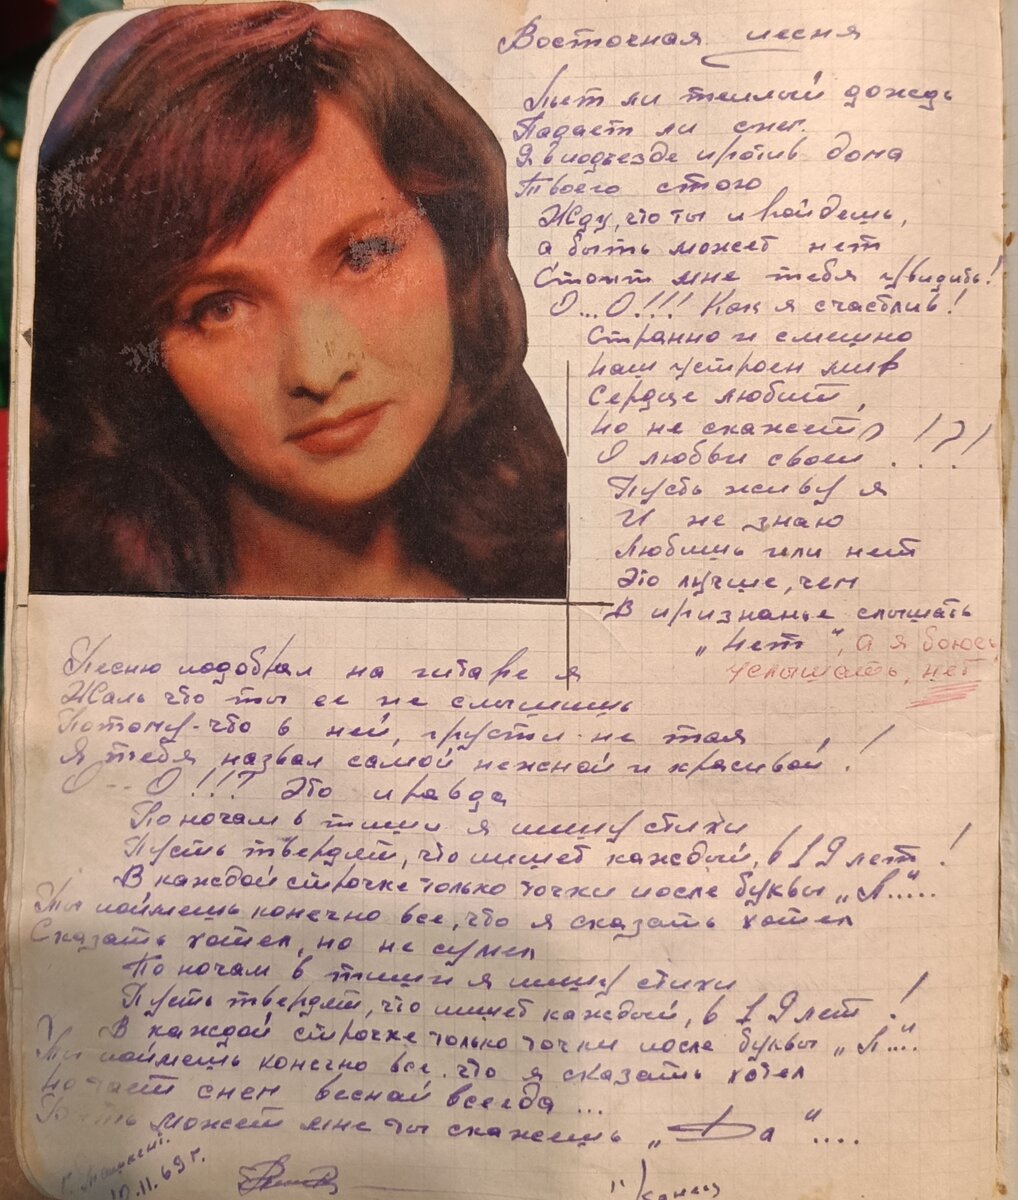 Восточная песня
Льет ли теплый дождь
Падает ли снег.
Я в подъезде против дома
Твоего стою
Жду, что ты пройдешь,
а быть может нет
Стоит мне тебя увидить!
О...О!!! Как я счастлив!
Странно и смешно
наш устроен мир
Сердце любит,
но не скажет
О любви своей . . ?!
!?!
Пусть живу я
И не знаю
Любишь или нет
Это лучше, чем
В признанье слышать
„нет", а я боюсь
услышать, нет
Песню подобрал на гитаре я
Жаль что ты ее не слышишь
Потому-что в ней, грусти не тая
Я тебя назвал самой нежной и красивой!
О--О!!! Это правда
По ночам в тиши я пишу стихи
Пусть твердят, что пишет каждый, в 19 лет!
В каждой строчке только точки после буквы „Л.....
Ты поймешь конечно все, что я сказать хотел
Сказать хотел, но не сумел
По ночам в тиши я пишу стихи
Пусть твердят, что пишет каждый, в 19 лет!
В каждой строчке только точки после буквы „Л"...
Ты поймешь конечно все. что я сказать хотел
снег весной всегда...
может мне ты скажешь „Да"....
г. Ташкент.
11.69 г.
"Конец